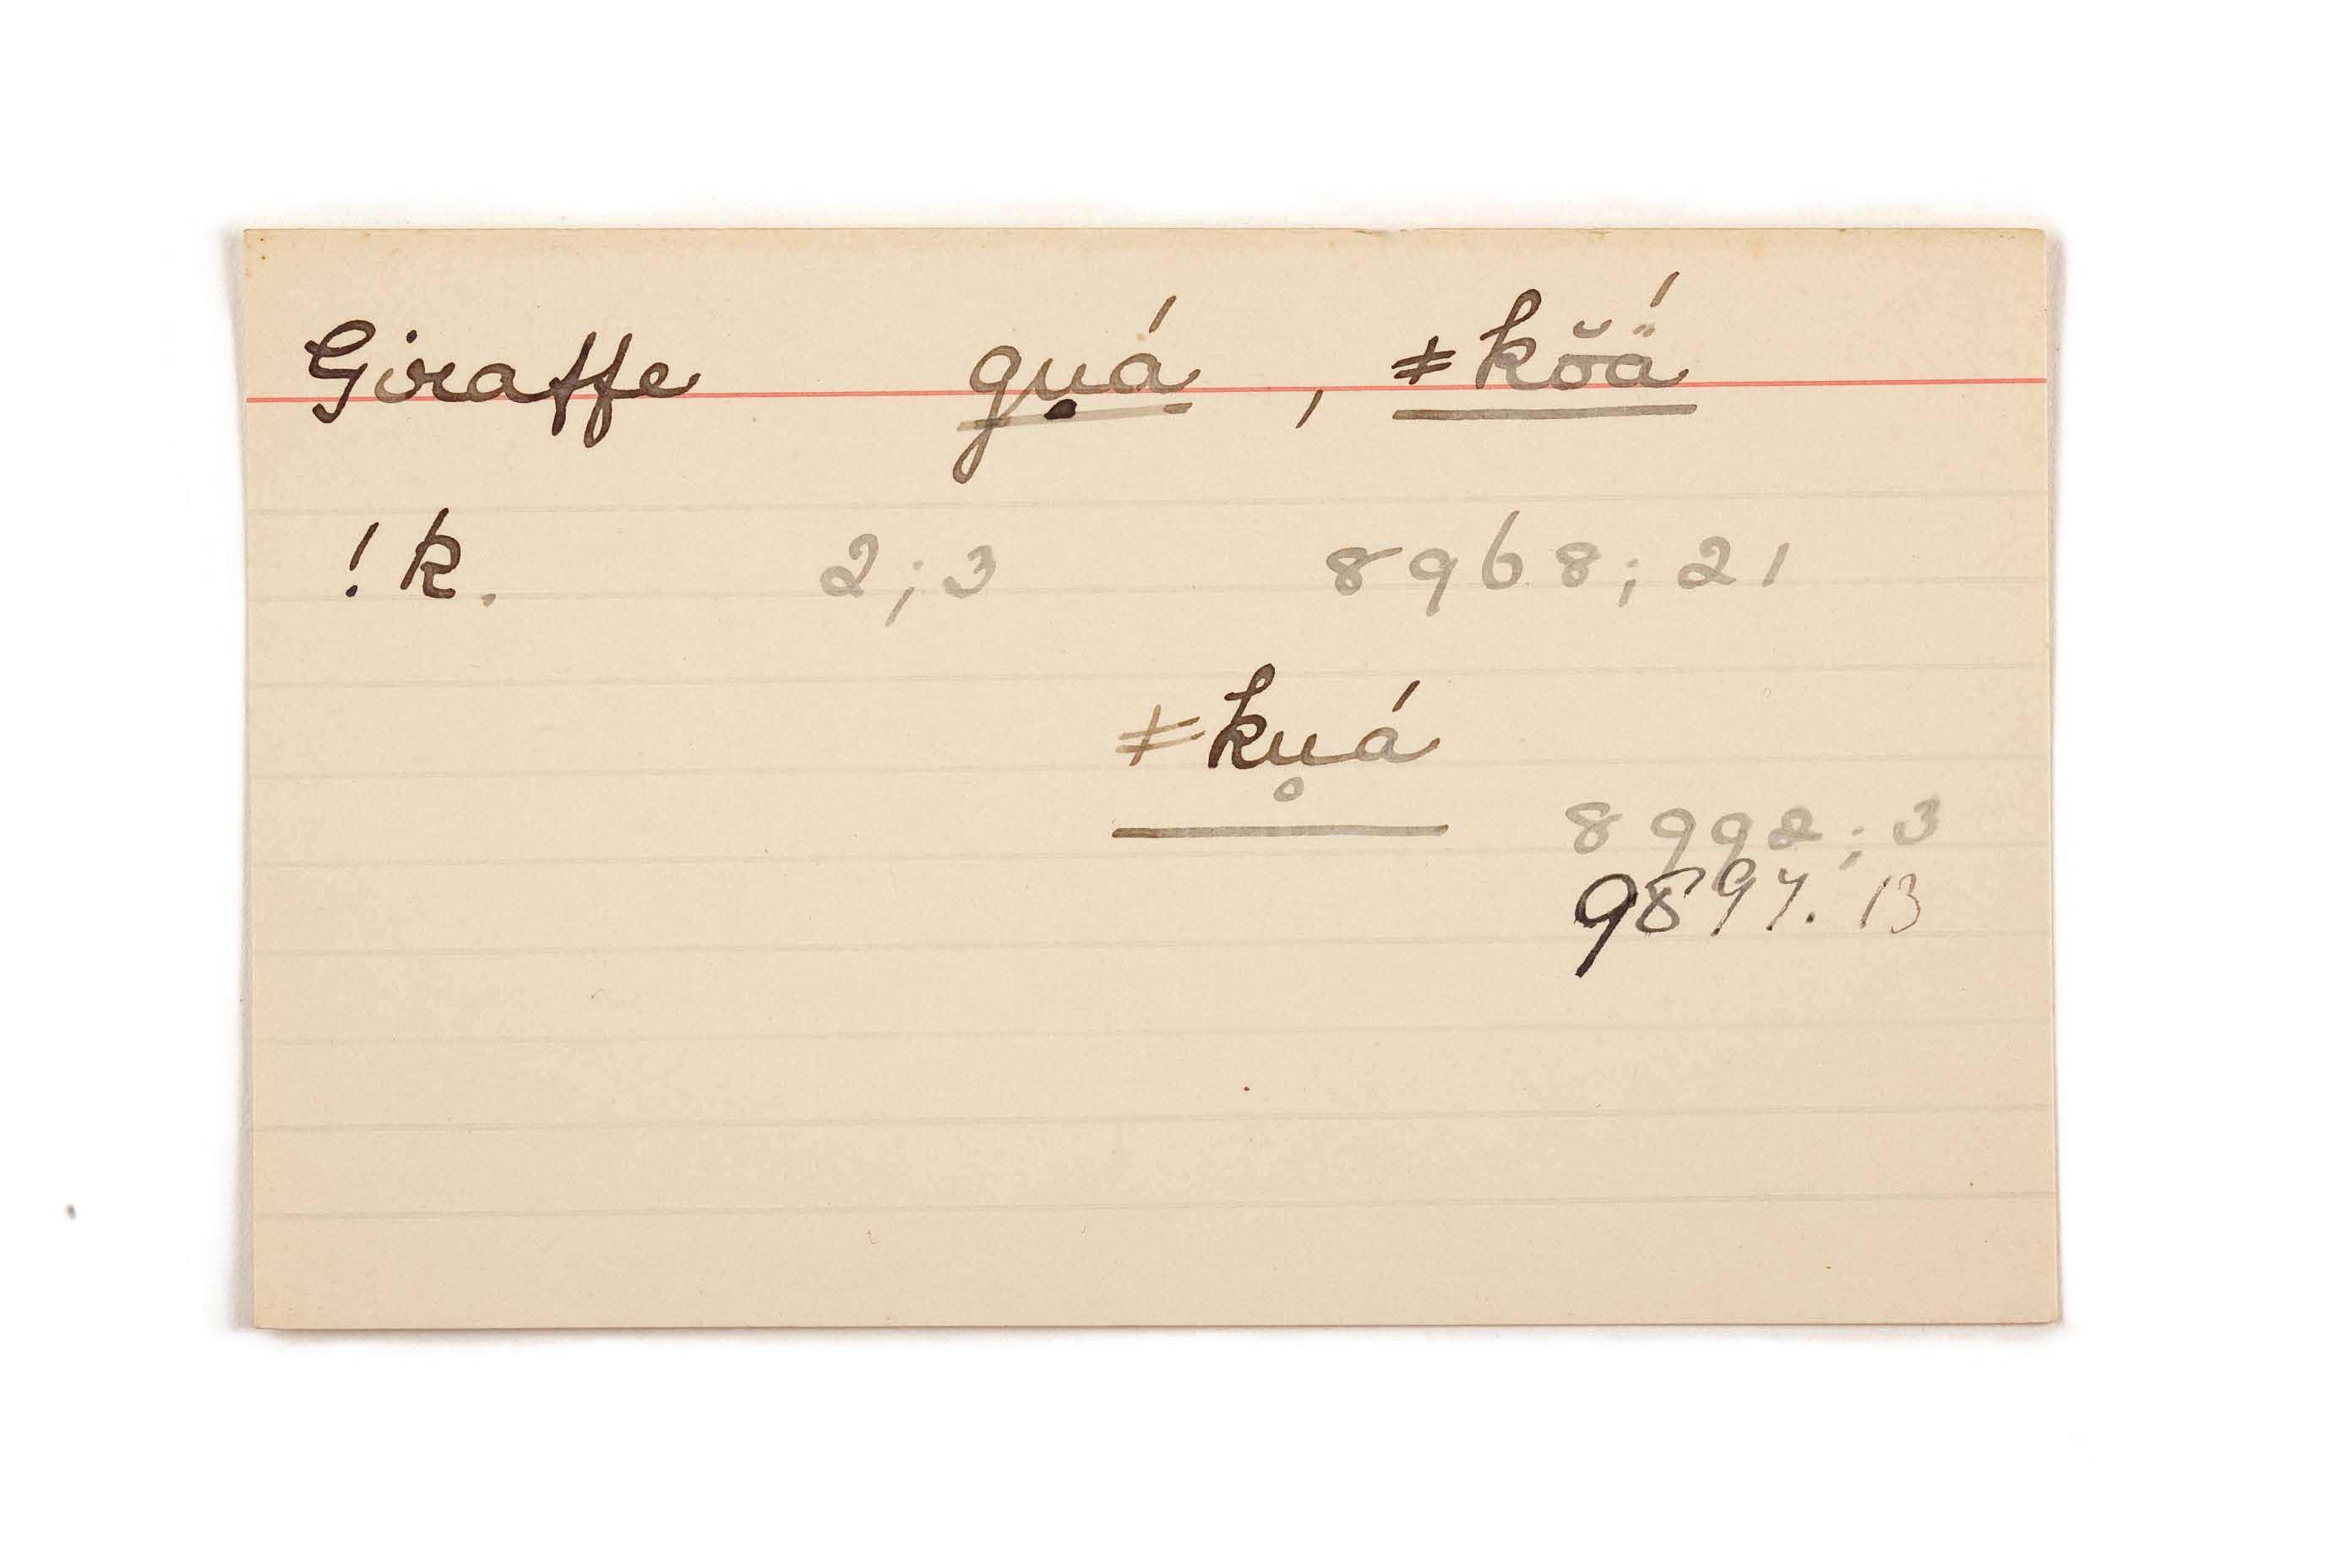 Giraffe gụá, ǂkŏä́
!k. 2;3 8968;21
ǂku̥á
8992;3
9897. 13